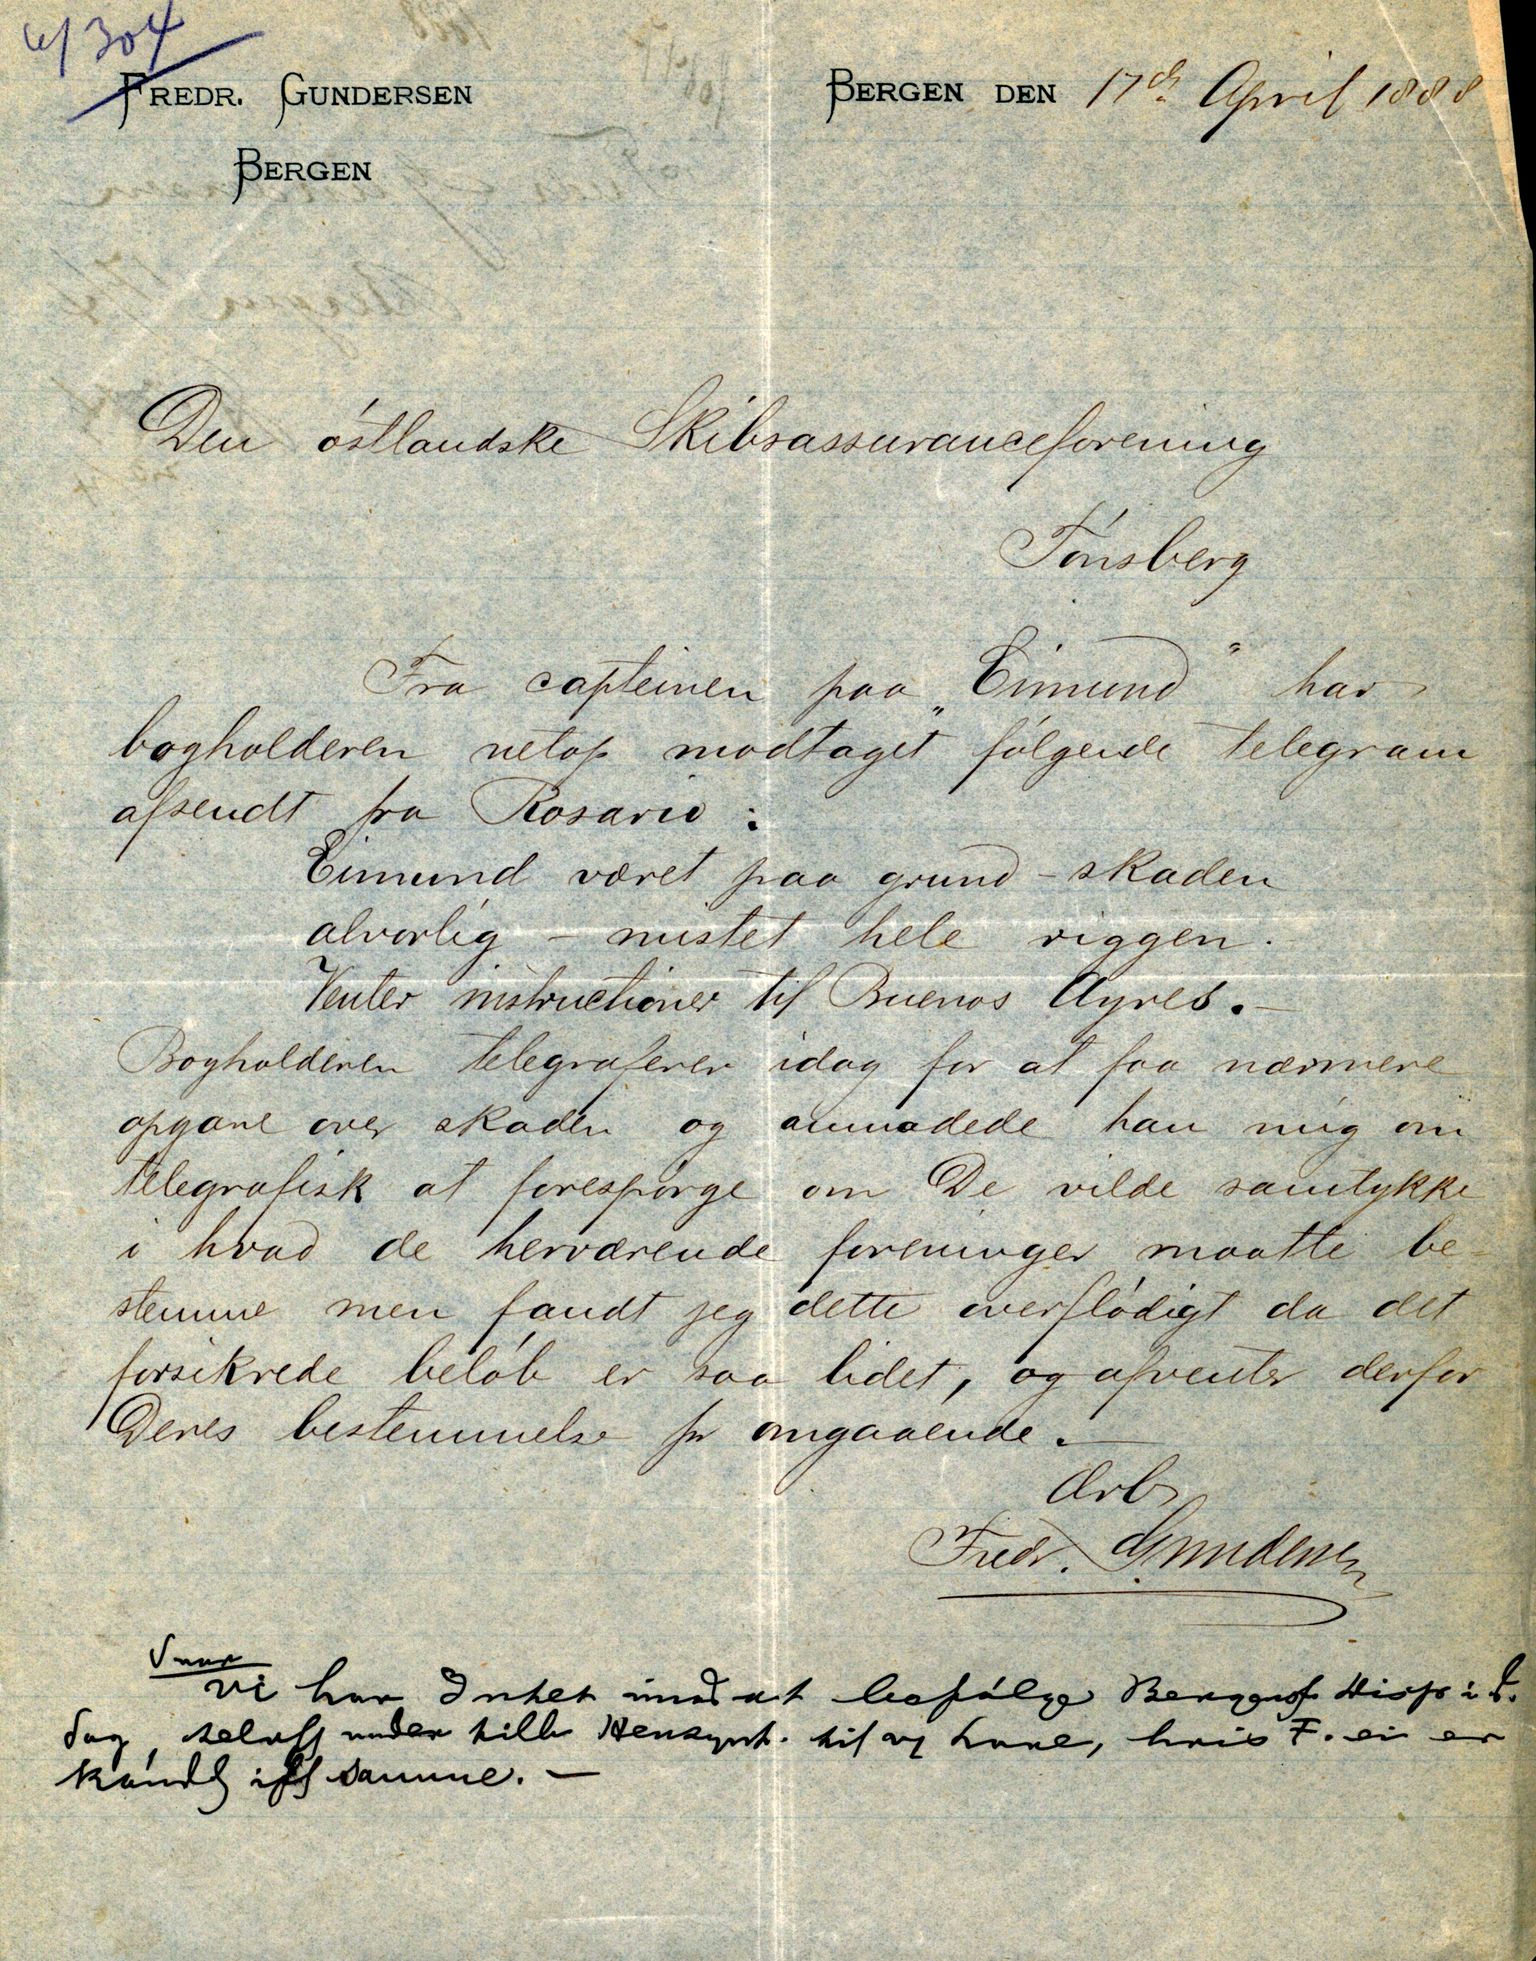 6/304
Fredr. Gundersen
Bergen
Bergen den 17de April 1888
Den östlandske Skibsassuranceforening
Tönsberg
Fra capteinen paa „Eimund" har
bogholderen netop modtaget fölgende telegram
afsendt fra Rosario:
Eimund været paa grund - skaden
alvorlig - mistet hele riggen.
Venter instructioner til Buenos Ayres. -
Bogholderen telegraferer idag for at faa nærmere
opgave over skaden og anmodede han mig om
telegrafisk at forespörge om De vilde samtykke
i hvad de herværende foreninger maatte be-
stemme men fandt jeg dette overflödigt da det
forsikrede belöb er saa lidet, og afventer derfor
Deres bestemmelse pr omgaaende. -
Ærb
Fredr. Gundersen
Svar
Vi har Intet imod at befölge i
Sag, under til og have, hvis F. ei er
samme. -